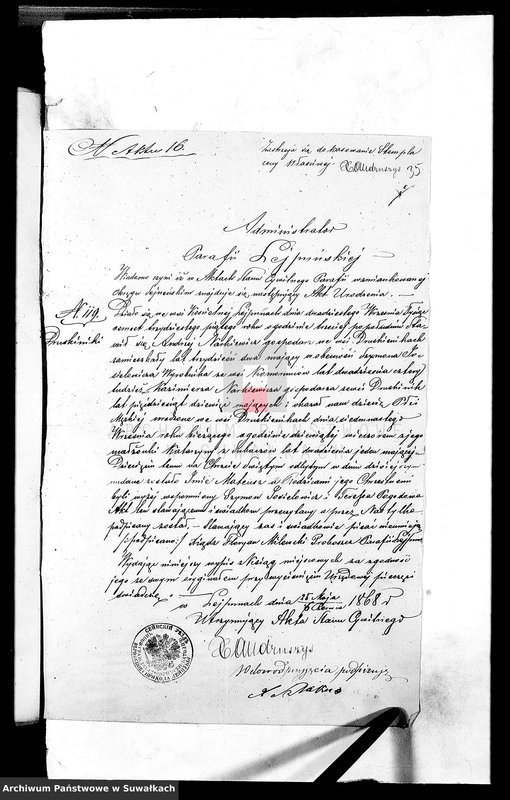 N Aktu 16.
Zastrzega się do kasowania Stempla
ceny Właściwej. X. Andruszys 35
Administrator
Parafii Lejpuńskiej
Wiadomo czyni iż w Aktach Stanu Cywilnego Parafii wzmiankowanej
Okręgu Sejneńskim znajduje się następujący Akt Urodzenia. —
N. 119.
Druskieniki
Działo się we wsi Kościelnej Lejpunach dnia dwudziestego Września Tysiąc
ośmset trzydziestego piątego roku o godzinie trzeciej po południu Sta-
wił się Andrzej Nackiewicz gospodarz we wsi Druskienikach
zamieszkały lat trzydzieści dwa mający w obecności Szymona
Wyrobnika we wsi lat dwadzieścia cztery
tudzież Kazimierza Nackiewicza gospodarza z wsi Druskienik
lat pięćdziesiąt dziewięć mających i okazał nam dziecię Płci
Męskiej urodzone we wsi Druskienikach dnia siedmnastego
Września roku bieżącego o godzinie dziewiątej wieczorem z jego
małżonki Katarzyny z lat dwadzieścia jeden mającej.
Dziecięciu temu na Chrzcie Świętym odbytym w dniu dzisiejszym
nadane zostało Imie Mateusz a Rodzicami jego Chrzestnemi
byli wyżej wspomniony Szymon i Teressa
Akt ten stawającemu i świadkom przeczytany a przez Nas tylko
podpisany został. — Stawający zaś i świadkowie pisać nieumieją
/:podpisano:/ Xiądz Floryan Milewski Proboszcz Parafii Lejpuny
Wydając niniejszy wypis z Xiąg miejscowych za zgodność
jego ze swym oryginałem przy wyciśnięciu Urzędowej pieczęci
świadczę.
w Lejpunach dnia 25 Maja / 6 Czerwca 1868 r
Utrzymujący Akta Stanu Cywilnego
X. Andruszys
W dowód przyjęcia podpisuję
Archiwum Państwowe w Suwałkach